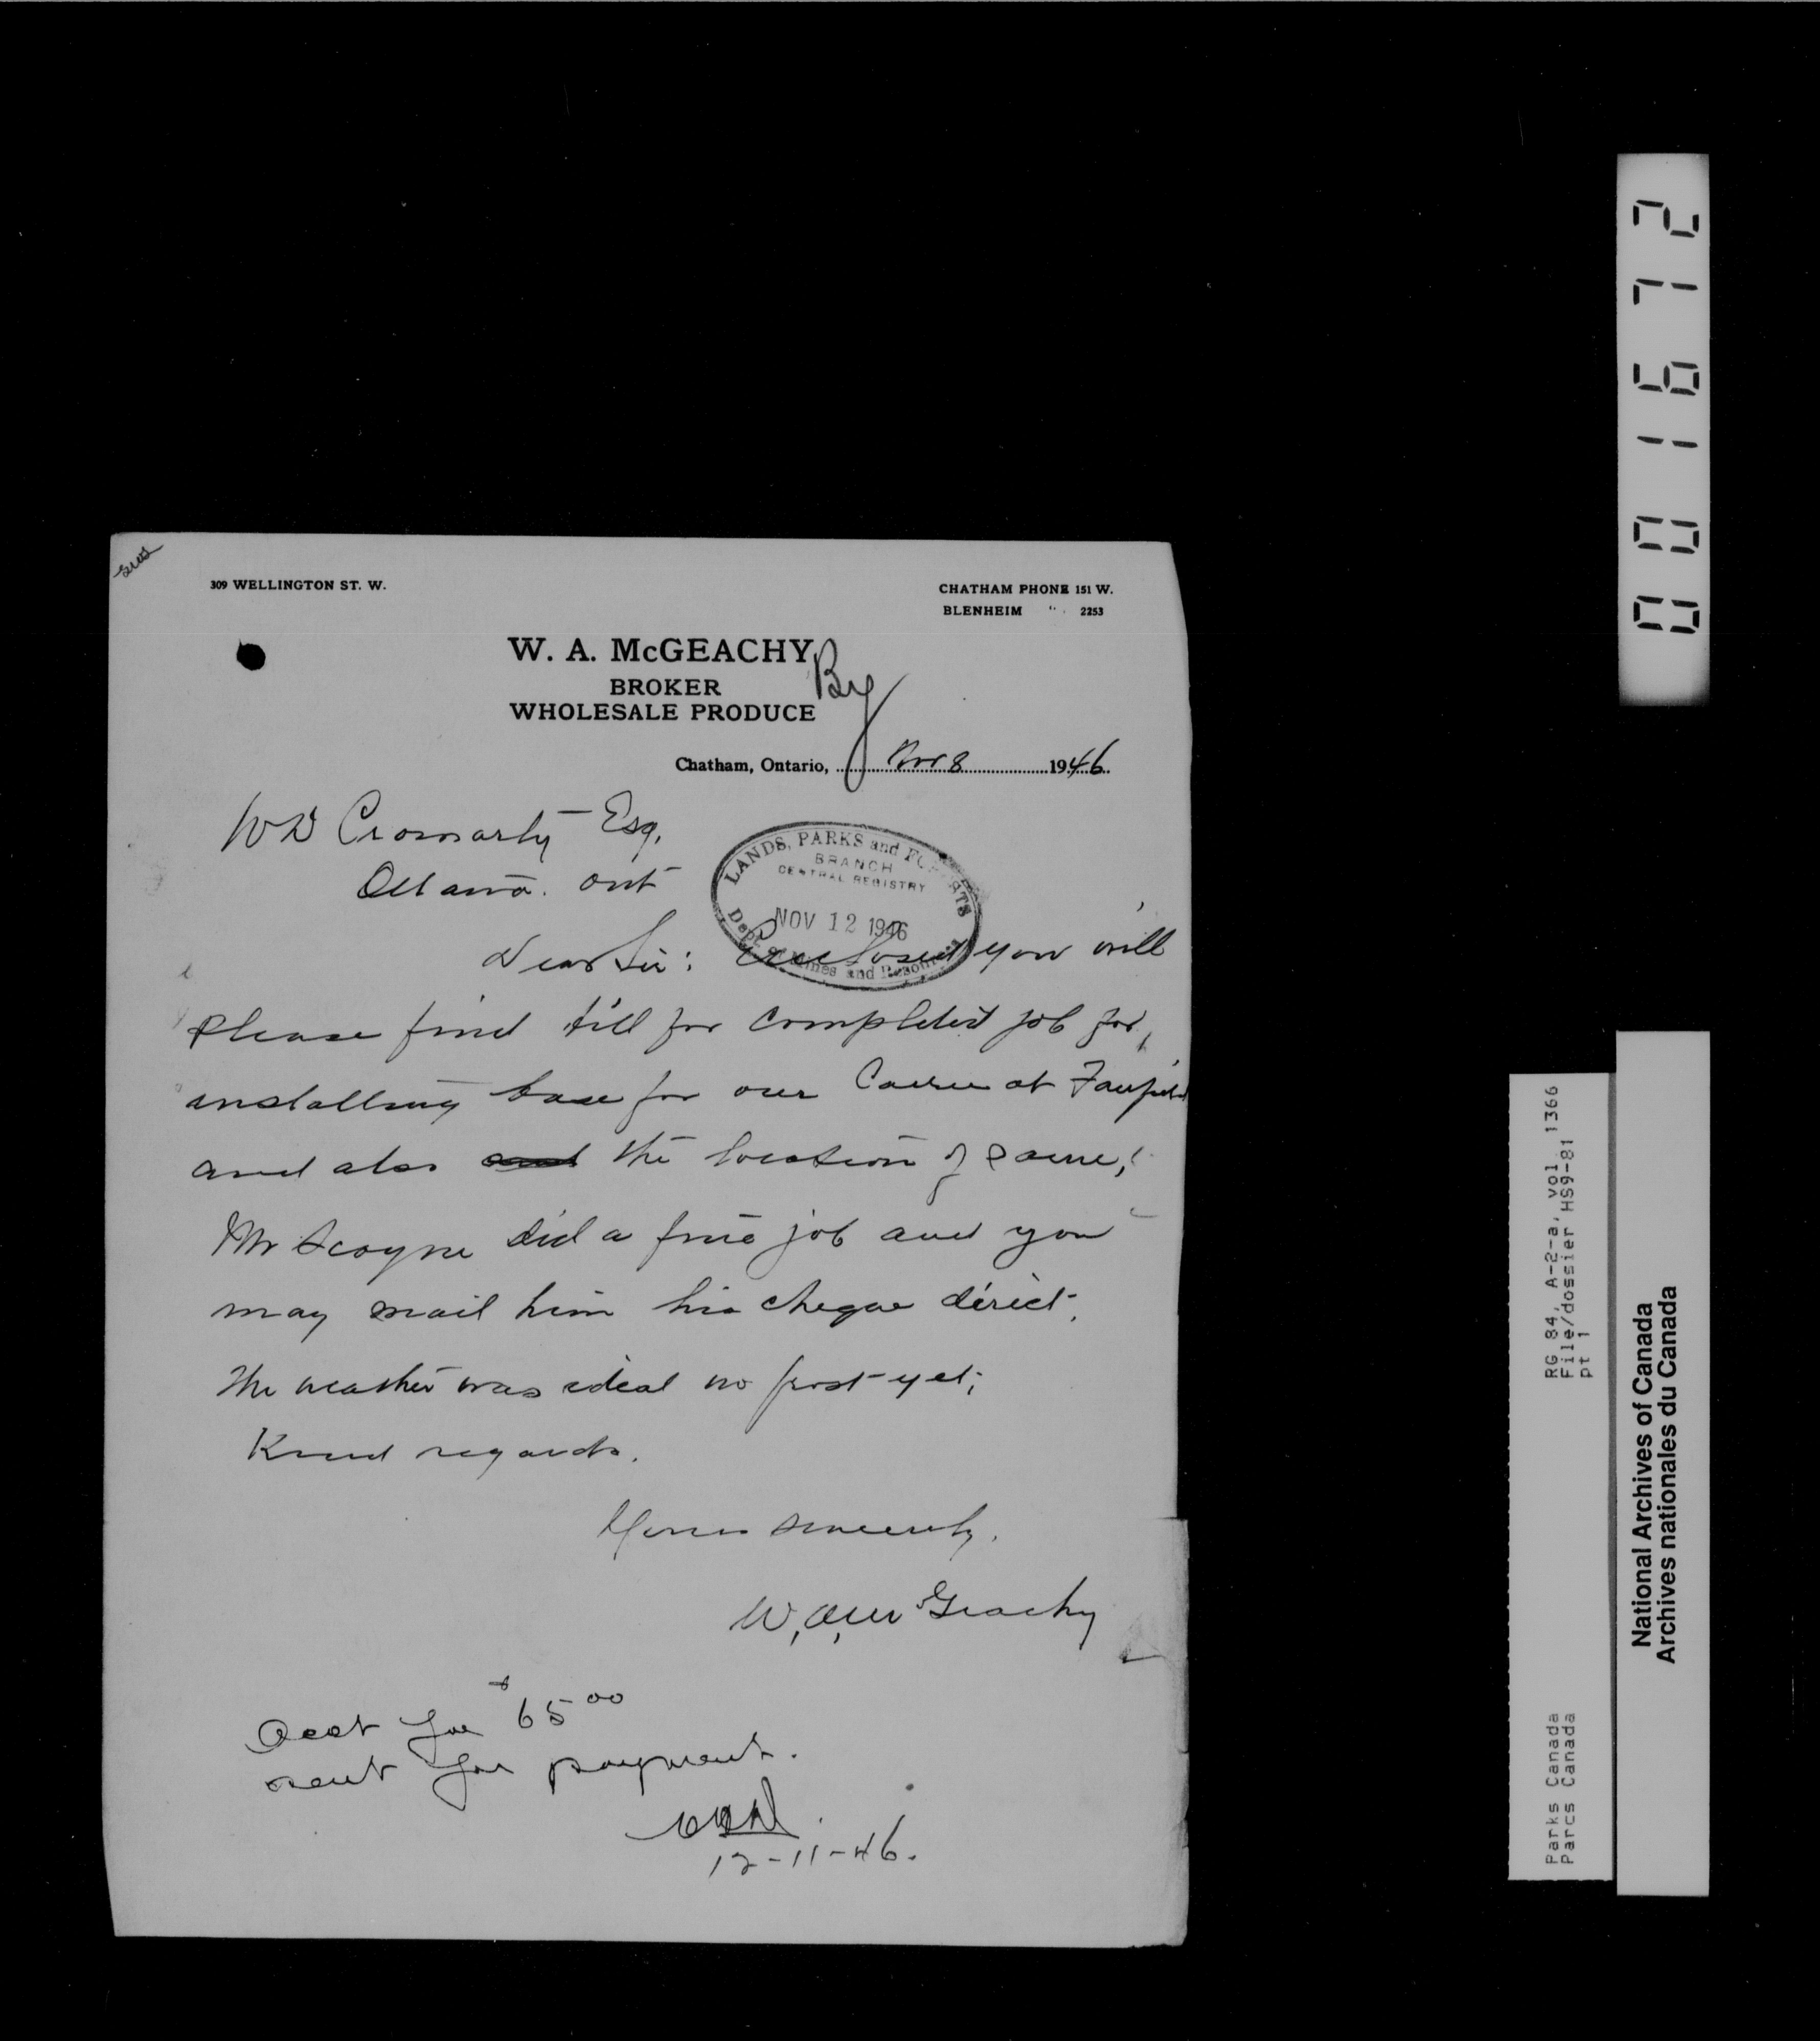 309 WELLINGTON ST. W.
CHATHAM PHONE 151 W.
BLENHEIM " 2253
W. A. McGEACHY
BROKER
WHOLESALE PRODUCE
By
Chatham, Ontario, Nov 8 1946
W D Cromarty Esq.
Ottawa. Ont
LANDS, PARKS and FORESTS
BRANCH
CENTRAL REGISTRY
NOV 12 1946
Dept. of Mines and Resources
Dear Sir: Enclosed you will
please find bill for completed job for,
installing base for our Cairn at Fairfield
and also and the location of same,
Mr Scoyne did a fine job and you
may mail him his cheque direct.
The weather was ideal no frost yet;
Kind regards.
Yours sincerely,
W. A. McGeachy
Acct for $65 00
sent for payment.
12-11-46.
001672
RG 84, A-2-a, vol 1366
File/dossier HS9-81
pt 1
Parks Canada
Parcs Canada
National Archives of Canada
Archives nationales du Canada